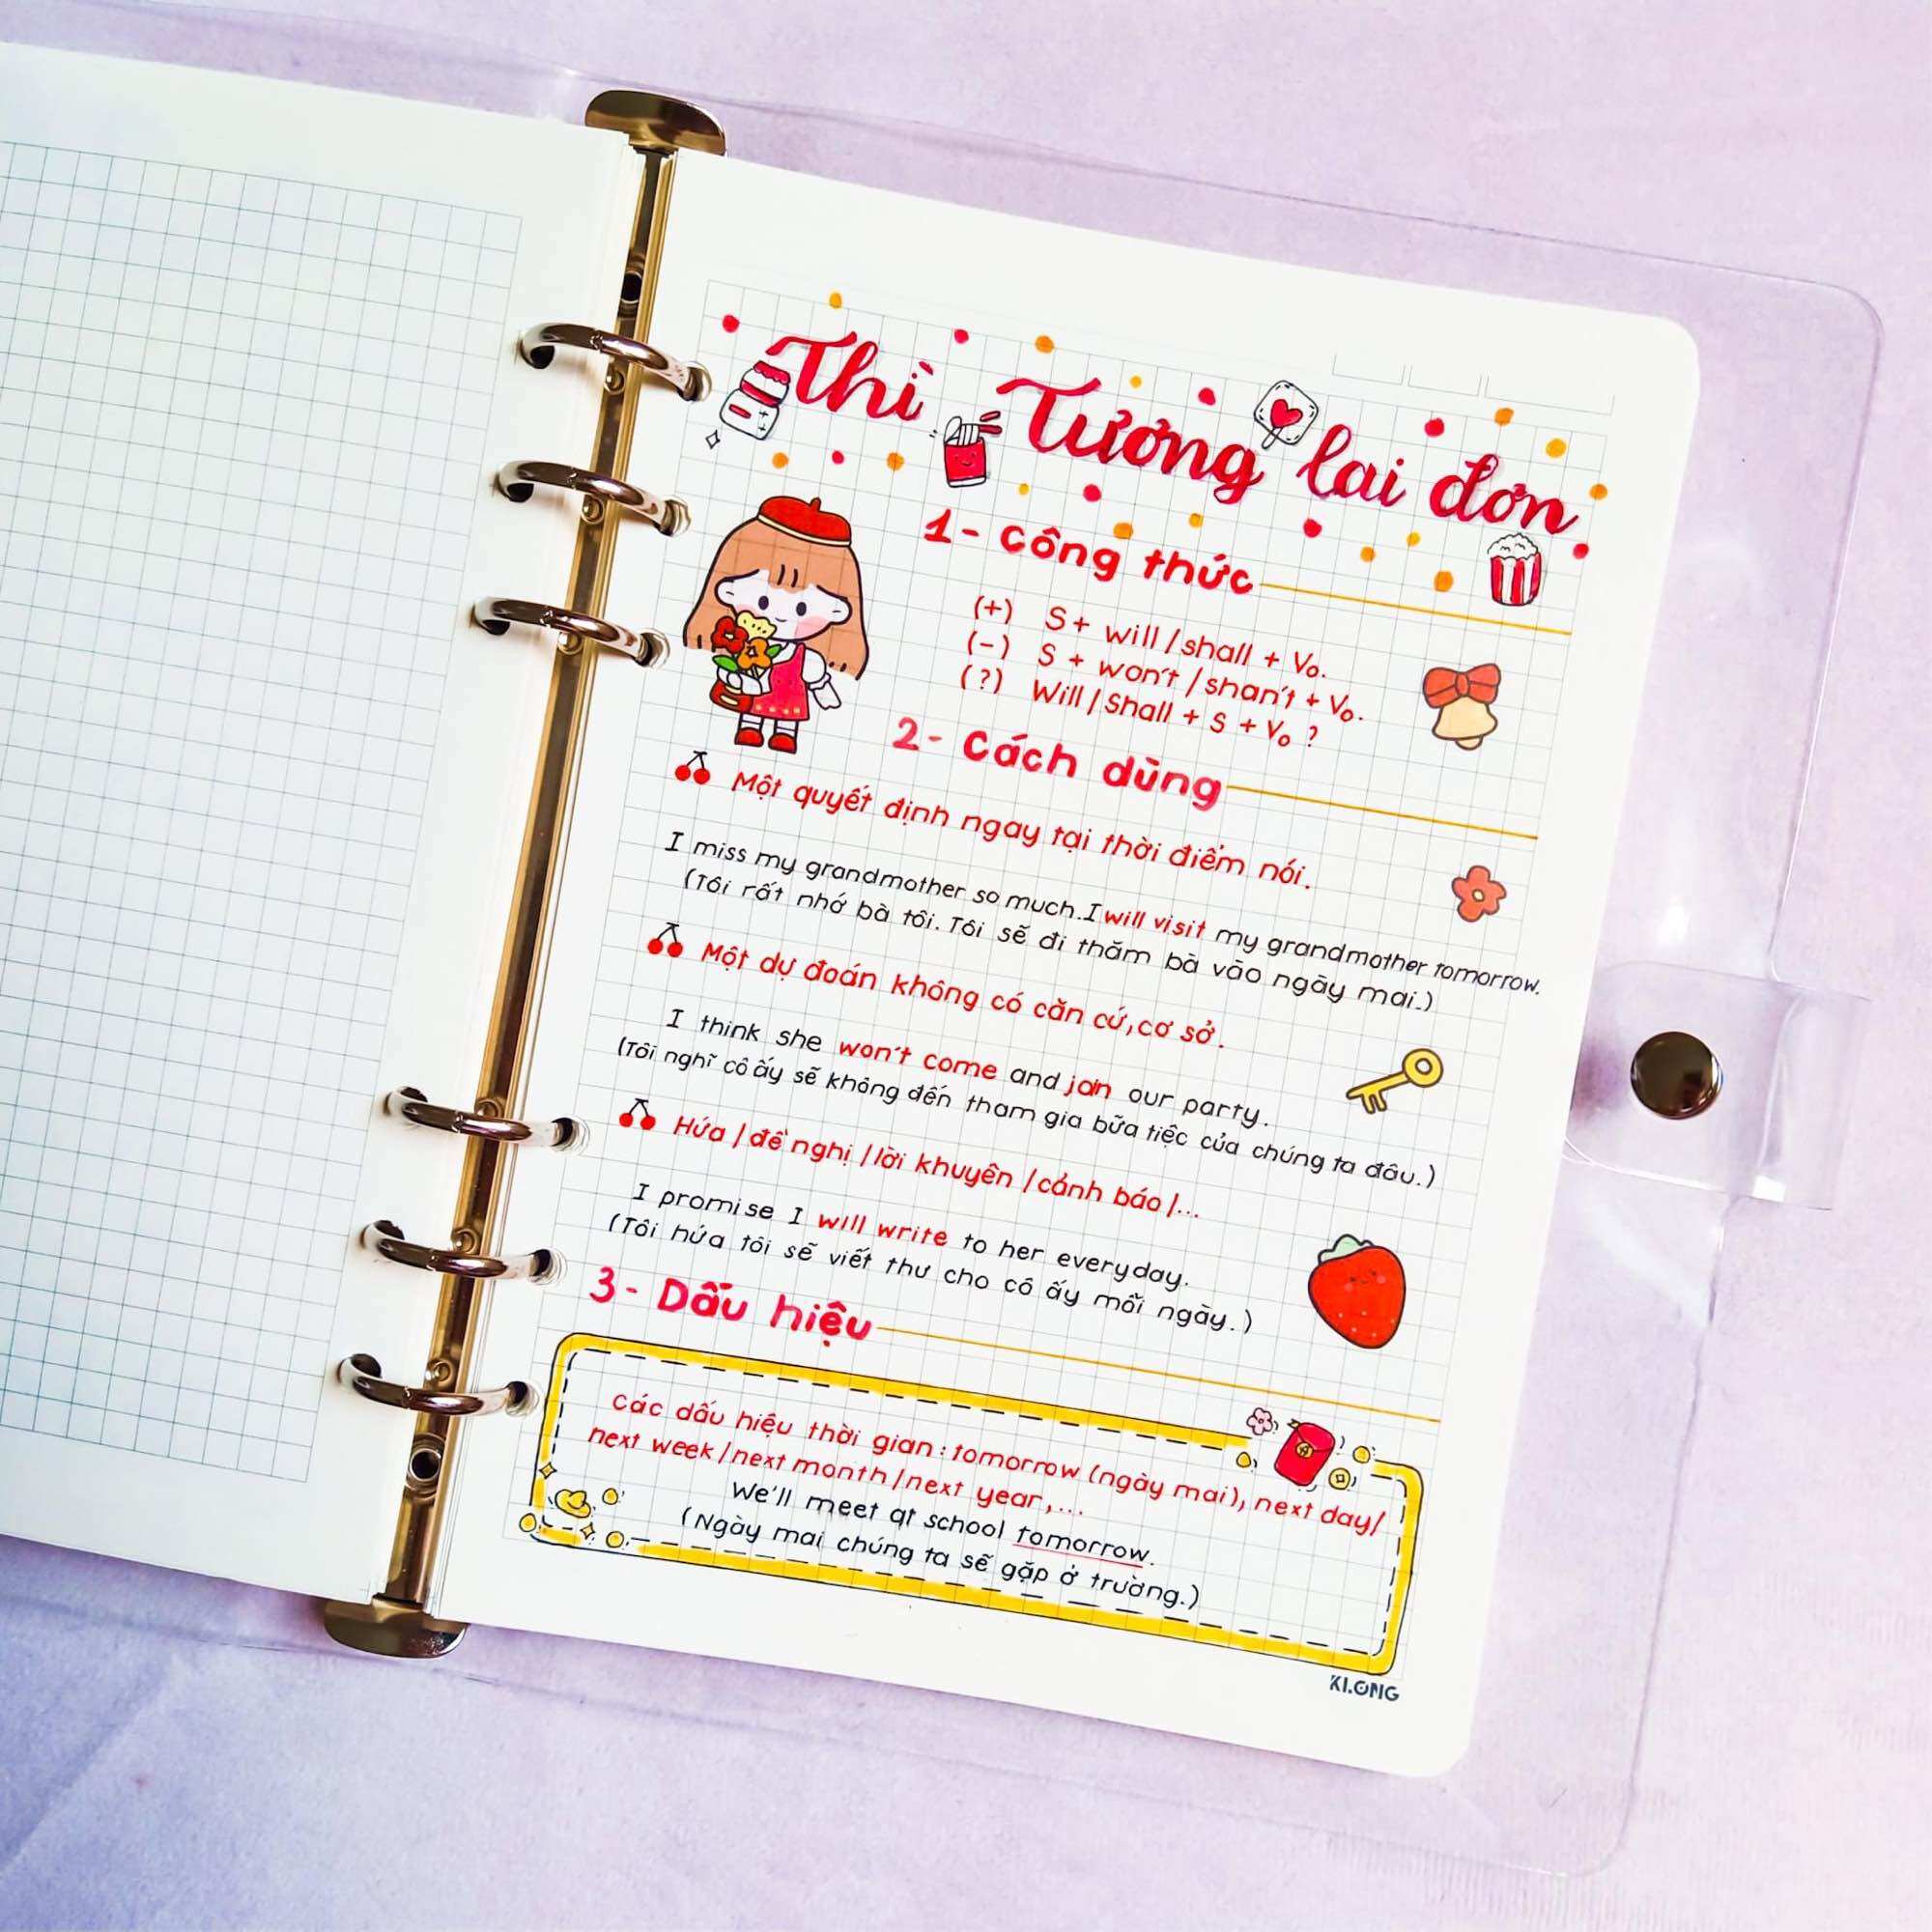 Thì Tương lai đơn
1 - Công thức
(+) S + will / shall + Vo.
(-) S + won't / shan't + Vo.
(?) Will / Shall + S + Vo ?
2 - Cách dùng
Một quyết định ngay tại thời điểm nói.
I miss my grandmother so much. I will visit my grandmother tomorrow.
(Tôi rất nhớ bà tôi. Tôi sẽ đi thăm bà vào ngày mai.)
Một dự đoán không có căn cứ, cơ sở.
I think she won't come and join our party.
(Tôi nghĩ cô ấy sẽ không đến tham gia bữa tiệc của chúng ta đâu.)
Hứa / đề nghị / lời khuyên / cảnh báo /...
I promise I will write to her everyday.
(Tôi hứa tôi sẽ viết thư cho cô ấy mỗi ngày.)
3 - Dấu hiệu
Các dấu hiệu thời gian : tomorrow (ngày mai), next day/
next week / next month / next year, ...
We'll meet at school tomorrow.
(Ngày mai chúng ta sẽ gặp ở trường.)
KLONG